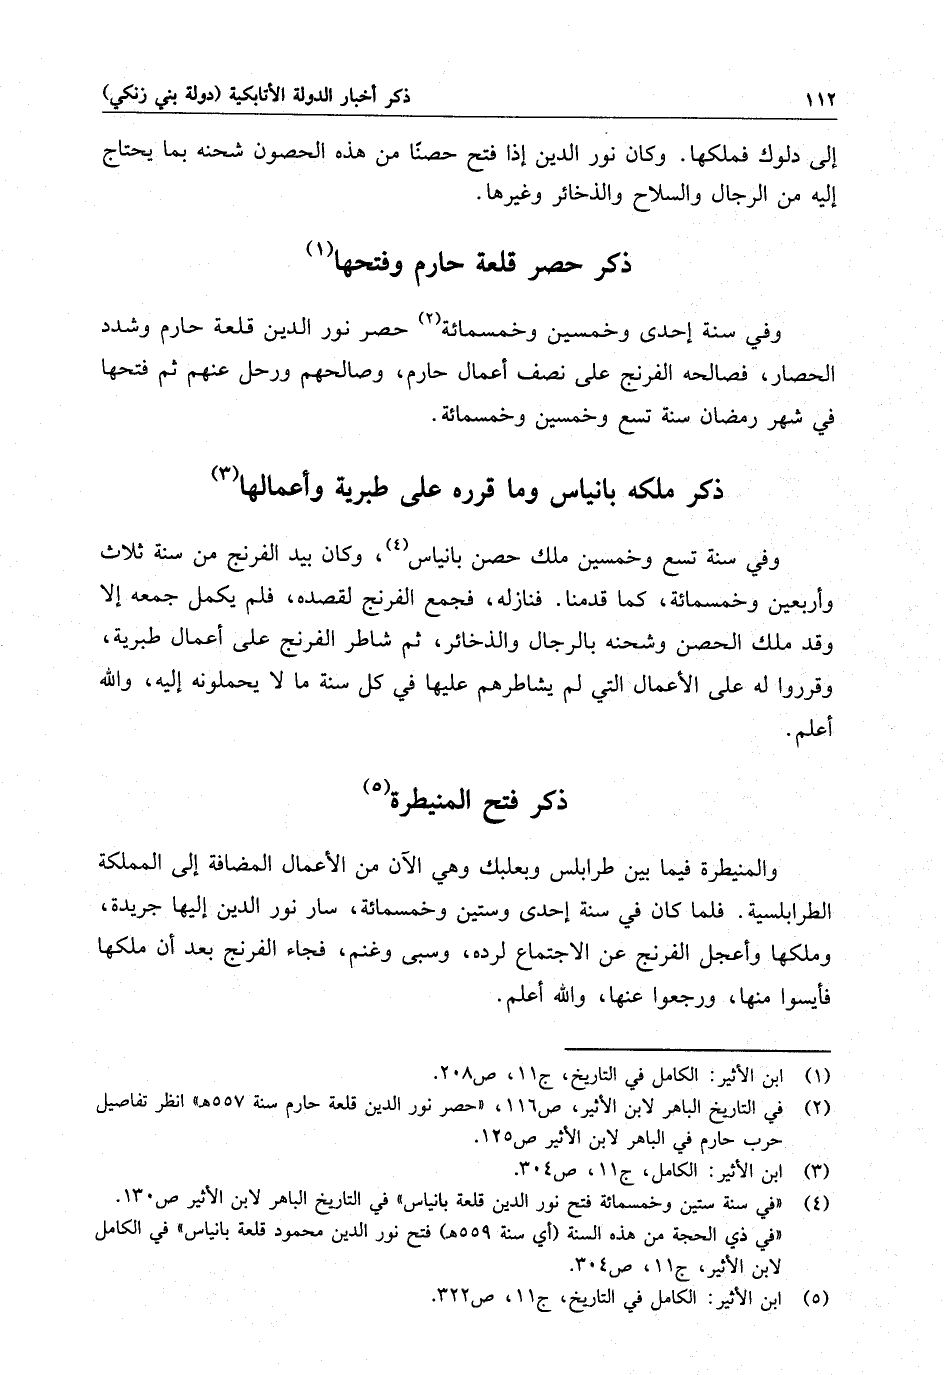 ١١٢ ذكر أخبار الدولة الأتابكية (دولة بني زنكي)
إلى دلوك فملكها. وكان نور الدين إذا فتح حصنًا من هذه الحصون شحنه بما يحتاج
إليه من الرجال والسلاح والذخائر وغيرها.
ذكر حصر قلعة حارم وفتحها(١)
وفي سنة إحدى وخمسين وخمسمائة(٢) حصر نور الدين قلعة حارم وشدد
الحصار، فصالحه الفرنج على نصف أعمال حارم، وصالحهم ورحل عنهم ثم فتحها
في شهر رمضان سنة تسع وخمسين وخمسمائة.
ذكر ملكه بانياس وما قرره على طبرية وأعمالها(٣)
وفي سنة تسع وخمسين ملك حصن بانياس(٤)، وكان بيد الفرنج من سنة ثلاث
وأربعين وخمسمائة، كما قدمنا. فنازله، فجمع الفرنج لقصده، فلم يكمل جمعه إلا
وقد ملك الحصن وشحنه بالرجال والذخائر، ثم شاطر الفرنج على أعمال طبرية،
وقرروا له على الأعمال التي لم يشاطرهم عليها في كل سنة ما لا يحملونه إليه، والله
أعلم.
ذكر فتح المنيطرة(٥)
والمنيطرة فيما بين طرابلس وبعلبك وهي الآن من الأعمال المضافة إلى المملكة
الطرابلسية. فلما كان في سنة إحدى وستين وخمسمائة، سار نور الدين إليها جريدة،
وملكها وأعجل الفرنج عن الاجتماع لرده، وسبى وغنم، فجاء الفرنج بعد أن ملكها
فأيسوا منها، ورجعوا عنها، والله أعلم.
(١) ابن الأثير: الكامل في التاريخ، ج١١، ص٢٠٨.
(٢) في التاريخ الباهر لابن الأثير، ص١١٦، «حصر نور الدين قلعة حارم سنة ٥٥٧هـ» انظر تفاصيل
حرب حارم في الباهر لابن الأثير ص١٢٥.
(٣) ابن الأثير: الكامل، ج١١، ص٣٠٤.
(٤) «في سنة ستين وخمسمائة فتح نور الدين قلعة بانياس» في التاريخ الباهر لابن الأثير ص١٣٠.
«في ذي الحجة من هذه السنة (أي سنة ٥٥٩هـ) فتح نور الدين محمود قلعة بانياس» في الكامل
لابن الأثير، ج١١، ص٣٠٤.
(٥) ابن الأثير: الكامل في التاريخ، ج١١، ص٣٢٢.